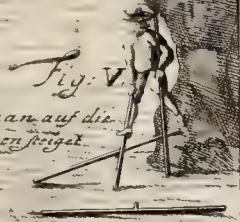 Fig: V.
an auf die
en steiget